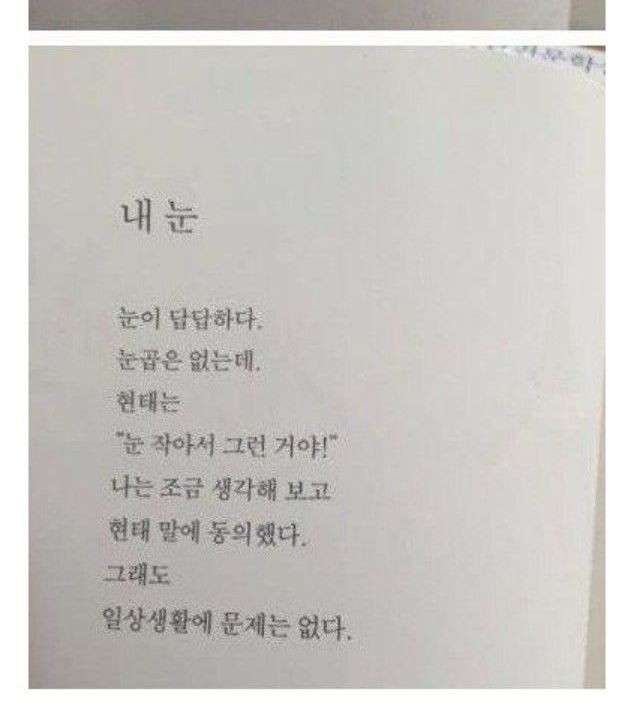 내 눈
눈이 답답하다.
눈곱은 없는데.
현태는
"눈 작아서 그런 거야!"
나는 조금 생각해 보고
현태 말에 동의했다.
그래도
일상생활에 문제는 없다.